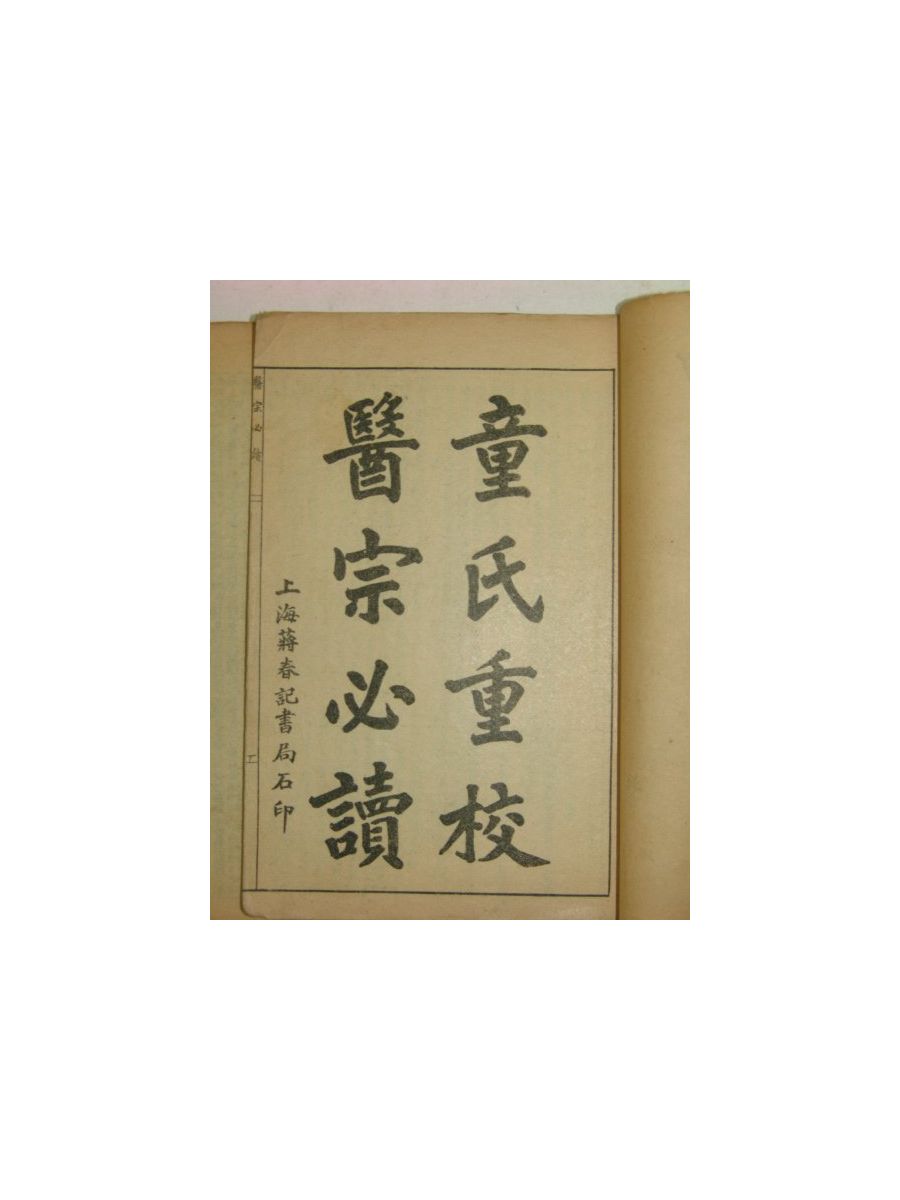 童氏重校
醫宗必讀
上海蔣春記書局石印
醫宗必讀